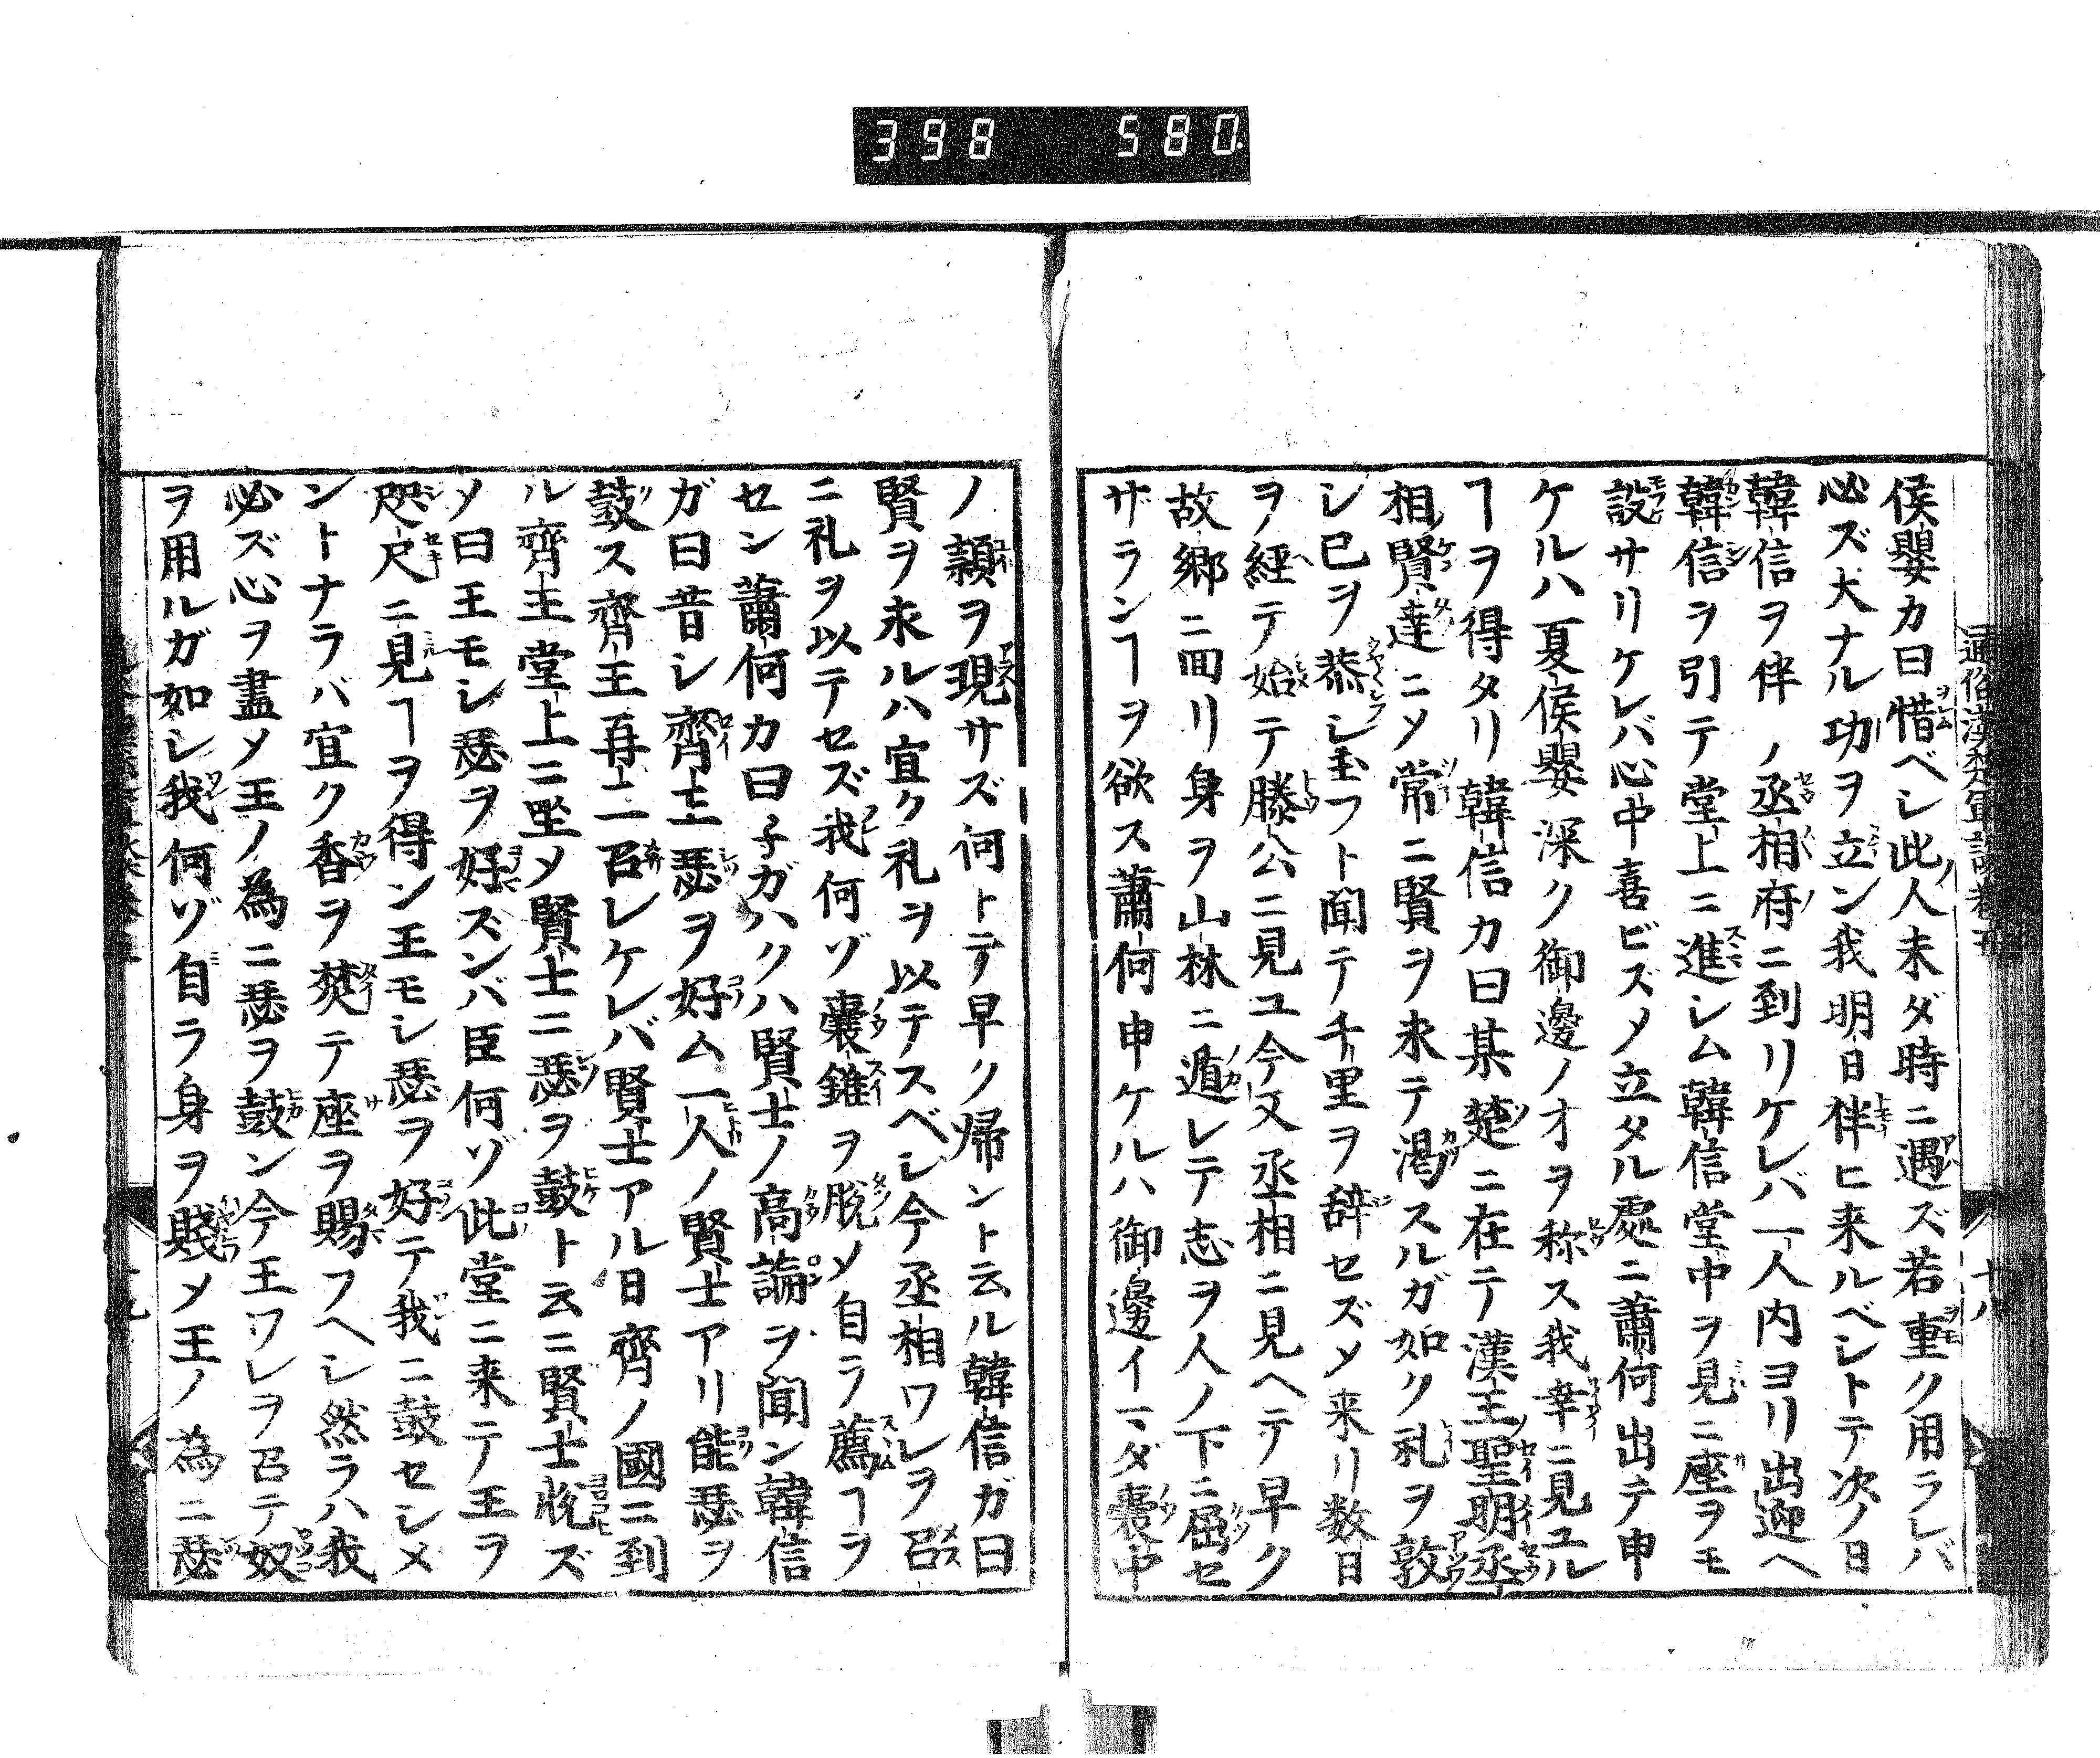 398 580
通俗漢楚軍談巻五
十八
侯嬰カ曰惜ベシ此人未ダ時ニ遇ズ若重ク用ラレバ
必ズ大ナル功ヲ立ン我明日伴ヒ来ルベシトテ次ノ日
韓信ヲ伴ノ丞相府ニ到リケレバ一人内ヨリ出迎ヘ
韓信ヲ引テ堂上ニ進シム韓信堂中ヲ見ニ座ヲモ
設サリケレバ心中喜ビズメ立タル處ニ蕭何出テ申
ケルハ夏侯嬰深ク御邊ノ才ヲ称ス我幸ニ見ユル
ヿヲ得タリ韓信カ曰某楚ニ在テ漢王聖明丞
相賢達ニメ常ニ賢ヲ求テ渇スルガ如ク礼ヲ敦
シ已ヲ恭シ玉フト聞テ千里ヲ辞セズメ来リ数日
ヲ経テ始テ滕公ニ見ユ今又丞相ニ見ヘテ早ク
故郷ニ回リ身ヲ山林ニ遁レテ志ヲ人ノ下ニ屈セ
ザランヿヲ欲ス蕭何申ケルハ御邊イマダ嚢中
ノ頴ヲ現サズ何トテ早ク帰ント云ル韓信ガ曰
賢ヲ求ルハ宜ク礼ヲ以テスベシ今丞相ワレヲ召
ニ礼ヲ以テセズ我何ゾ嚢錐ヲ脱メ自ラ薦ヿヲ
セン蕭何カ曰子ガハクハ賢士ノ高論ヲ聞ン韓信
ガ曰昔シ齊王瑟ヲ好ム一人ノ賢士アリ能瑟ヲ
鼓ス齊王再二召レケレバ賢士アル日齊ノ國ニ到
ル齊王堂上ニ坐メ賢士ニ瑟ヲ鼓ト云ニ賢士悦ズ
ソ曰王モシ瑟ヲ好ズンバ臣何ゾ此堂ニ来テ王ヲ
咫尺ニ見ヿヲ得ン王モシ瑟ヲ好テ我ニ鼓セシメ
ントナラバ宜ク香ヲ焚テ座ヲ賜フヘシ然ラハ我
必ズ心ヲ盡メ王ノ為ニ瑟ヲ鼓ン今王ワレヲ召テ奴
ヲ用ルガ如シ我何ゾ自ラ身ヲ賤メ王ノ為ニ瑟